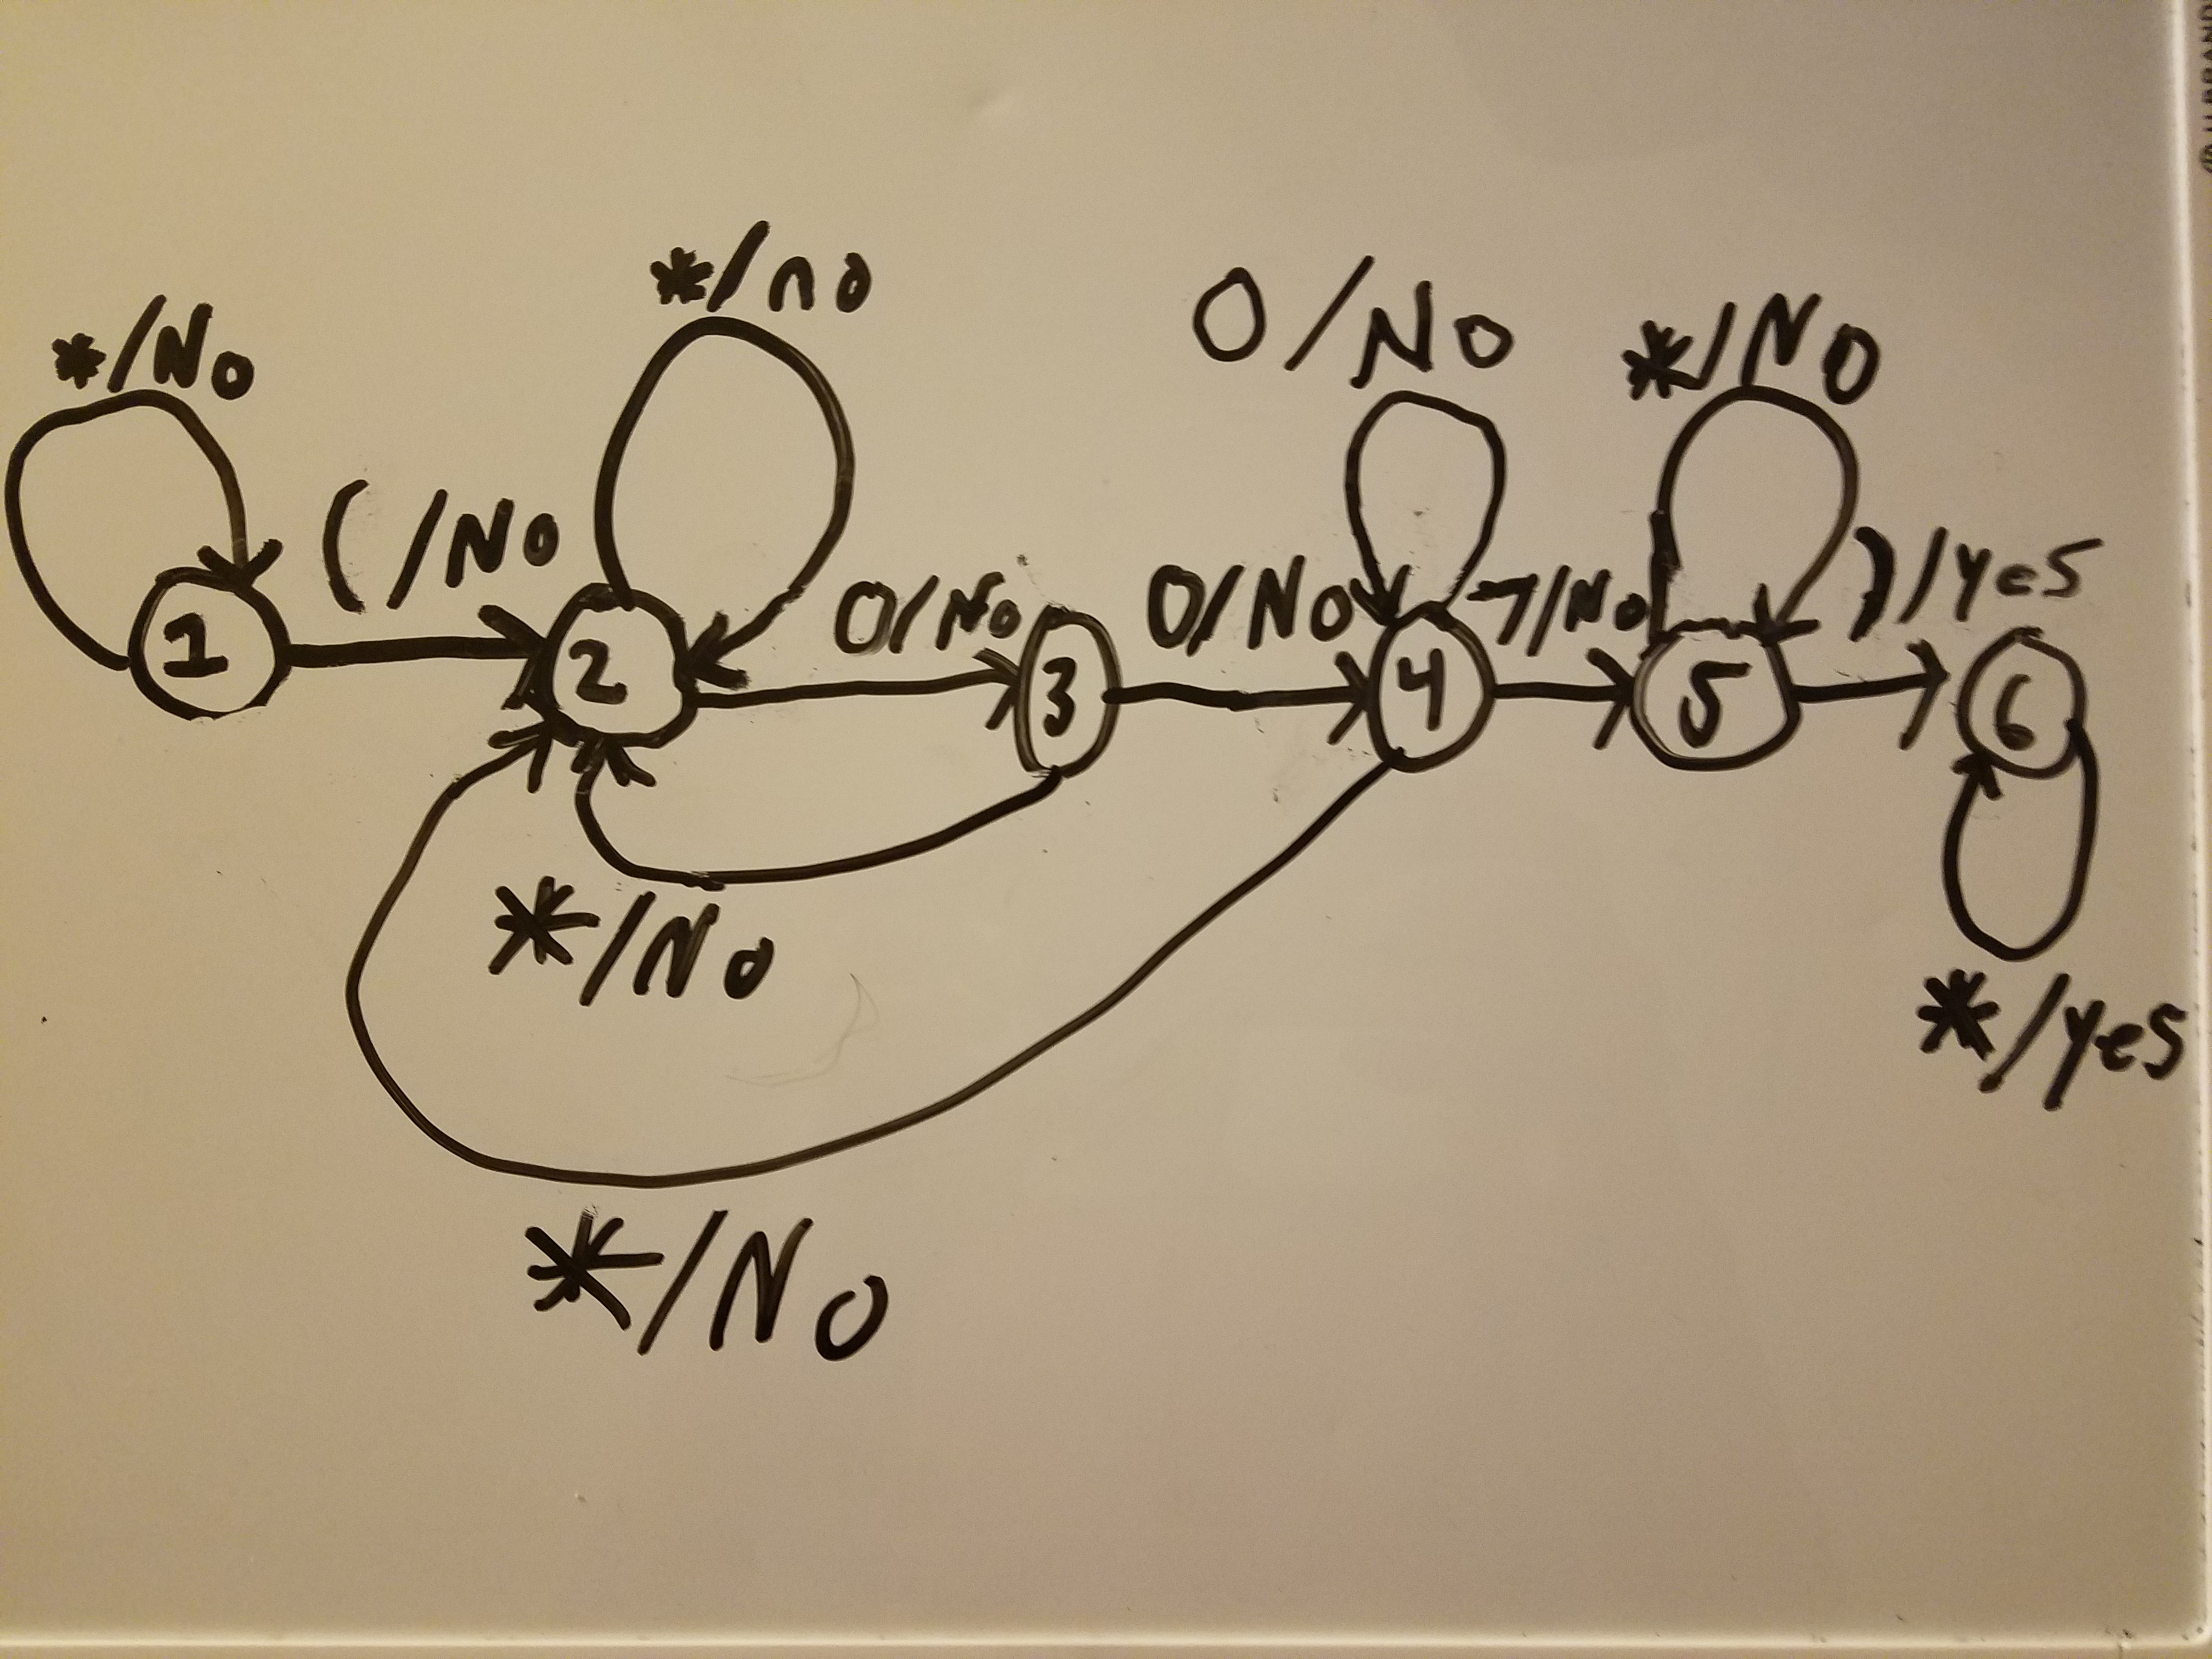 */No
(/No
*/no
0/No
0/No
0/No
7/No
*/No
)/yes
1
2
3
4
5
6
*/No
*/yes
*/No